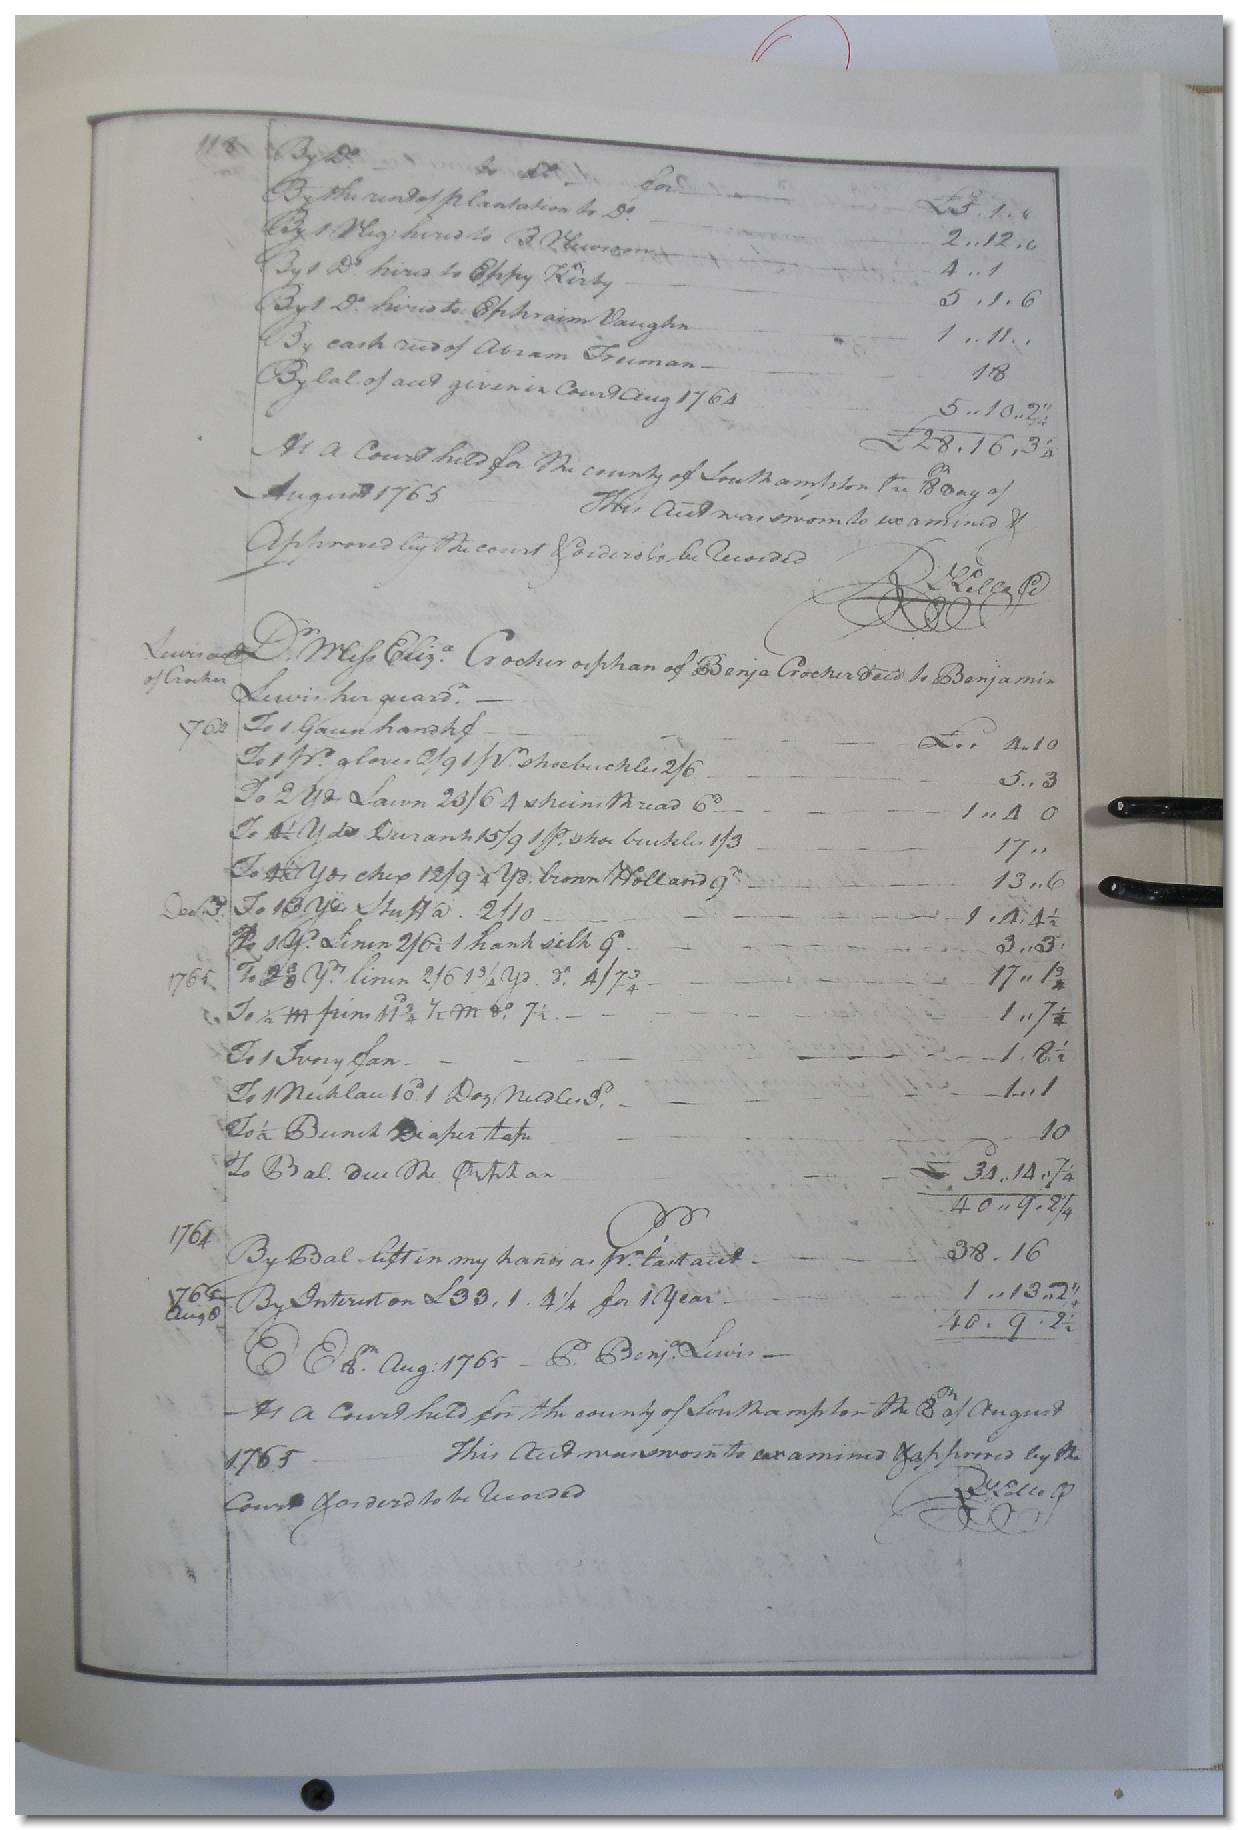 118 By Do to Do for £5.1.6
By the rent of plantation to Do 2..12.6
By 1 Neg: hired to B Newsom 4..1
By 1 Do hired to Eppy Kirby 5.1.6
By 1 Do hired to Ephraim Vaughn 1..11..
By cash recd of Abram Freeman 18
By bal. of acct given in Court Aug 1764 5..10..2¼
£28.16.3¼
At a Court held for the county of Southampton the 8th day of
August 1765 This Acct was sworn to examined &
Approved by the court & orderd to be Recorded
Rd Kello Cl
Lewis acct of Crocker
Dr. Miss Eliza. Crocker orphan of Benja Crocker decd to Benjamin
Lewis her guardn.
1764 To 1 Gaun handkf £.. 4.10
To 1 pr. gloves 2/9 1 pr. shoe buckles 2/6 5..3
To 2 Yds Lawn 23/6 4 skeins thread 6d 1..4 0
To Yds Durant 15/9 1 pr. shoe buckles 1/3 17..
To Yds chex 12/9 Yd. brown Holland 9d 13..6
Decr 3d. To 10 Yds Stuff a 2/10 1.4.4½
To 1 Yd. Linen 2/6 1 hank silk 9d 3..3
1765 To 2 Yds linen 2/6 1¾ Yd. do. 4/7¾ 17..1¾
To ½ m pins 11¾ ½ m do. 7½ 1..7¼
To 1 Ivory fan 1.8½
To 1 Necklace 10d 1 Doz Needles 3d. 1..1
To ½ Bunch Diaper tape 10
To Bal. due the Orphan £ 34..14..7¼
40..9.2¼
Cr
1764 By Bal left in my hands as pr. last acct 38.16
1765 Aug 8 By Interest on £33.1.4¼ for 1 Year 1..13..2¼
40.9.2¼
E E 8th. Aug: 1765 P. Benja. Lewis
At a Court held for the county of Southampton the 8th of August
1765 This Acct was sworn to examined & approved by the
Court & orderd to be Recorded
Rd Kello Cl